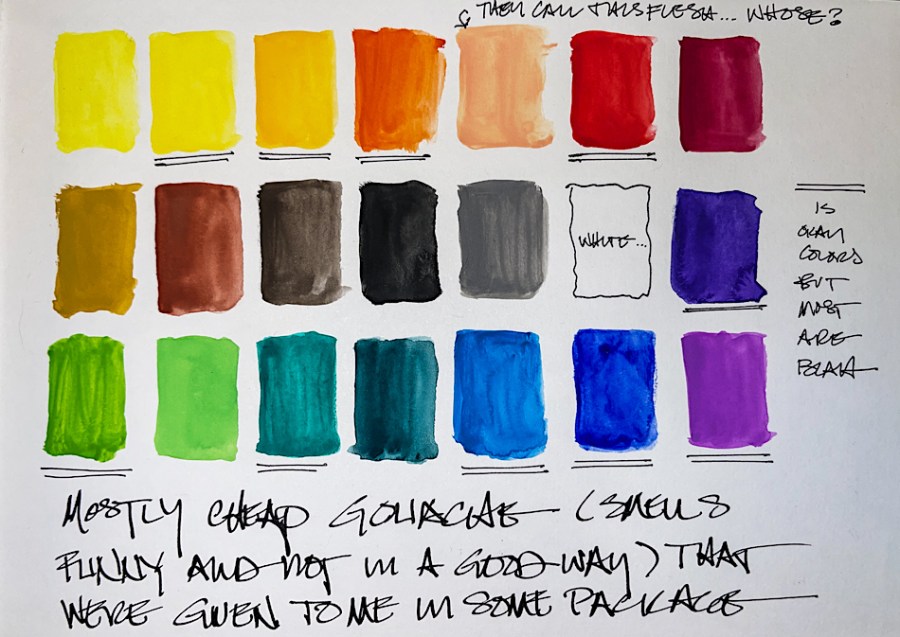 THEY CALL THIS FLESH... WHOSE?
WHITE...
IS
OKAY
COLORS
BUT
MOST
ARE
BLAH
MOSTLY CHEAP GOUACHE (SMELLS
FUNNY AND NOT IN A GOOD WAY) THAT
WERE GIVEN TO ME IN SOME PACKAGE